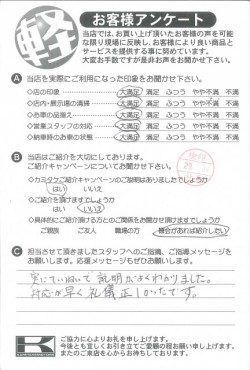 軽
お客様アンケート
当店では、お買い上げ頂いたお客様の声を可能
な限り現場に反映し、お客様により良い商品と
サービスを提供する事に努めています。
大変お手数ですが是非お声をお聞かせ下さい。
A 当店を実際にご利用になった印象をお聞かせ下さい。
◇店の印象 大満足 満足 ふつう やや不満 不満
◇店内・展示場の清掃 大満足 満足 ふつう やや不満 不満
◇お車の品揃え 大満足 満足 ふつう やや不満 不満
◇営業スタッフの対応 大満足 満足 ふつう やや不満 不満
◇納車時のお車の状態 大満足 満足 ふつう やや不満 不満
B 当店はご紹介を大切にしております。
ご紹介キャンペーンについてお聞かせ下さい。
◇カミタケご紹介キャンペーンのご説明はありましたでしょうか
はい いいえ
◇ご紹介を頂けますでしょうか
はい いいえ
◇具体的にご紹介頂ける方とのご関係をお聞かせ頂けますでしょうか
ご親族 ご友人 職場の方 機会があれば紹介したい
C 担当させて頂きましたスタッフへのご指摘、ご指導メッセージを
お願いします。応援メッセージもぜひお願いします。
実にていねいで説明がよくわかりました。
対応が早く礼儀正しかったです。
K
ご協力に心よりお礼を申し上げます。
今後とも宜しくお引き立てご愛顧の程お願い申し上げます。
またのご来店を心からお待ちしております。